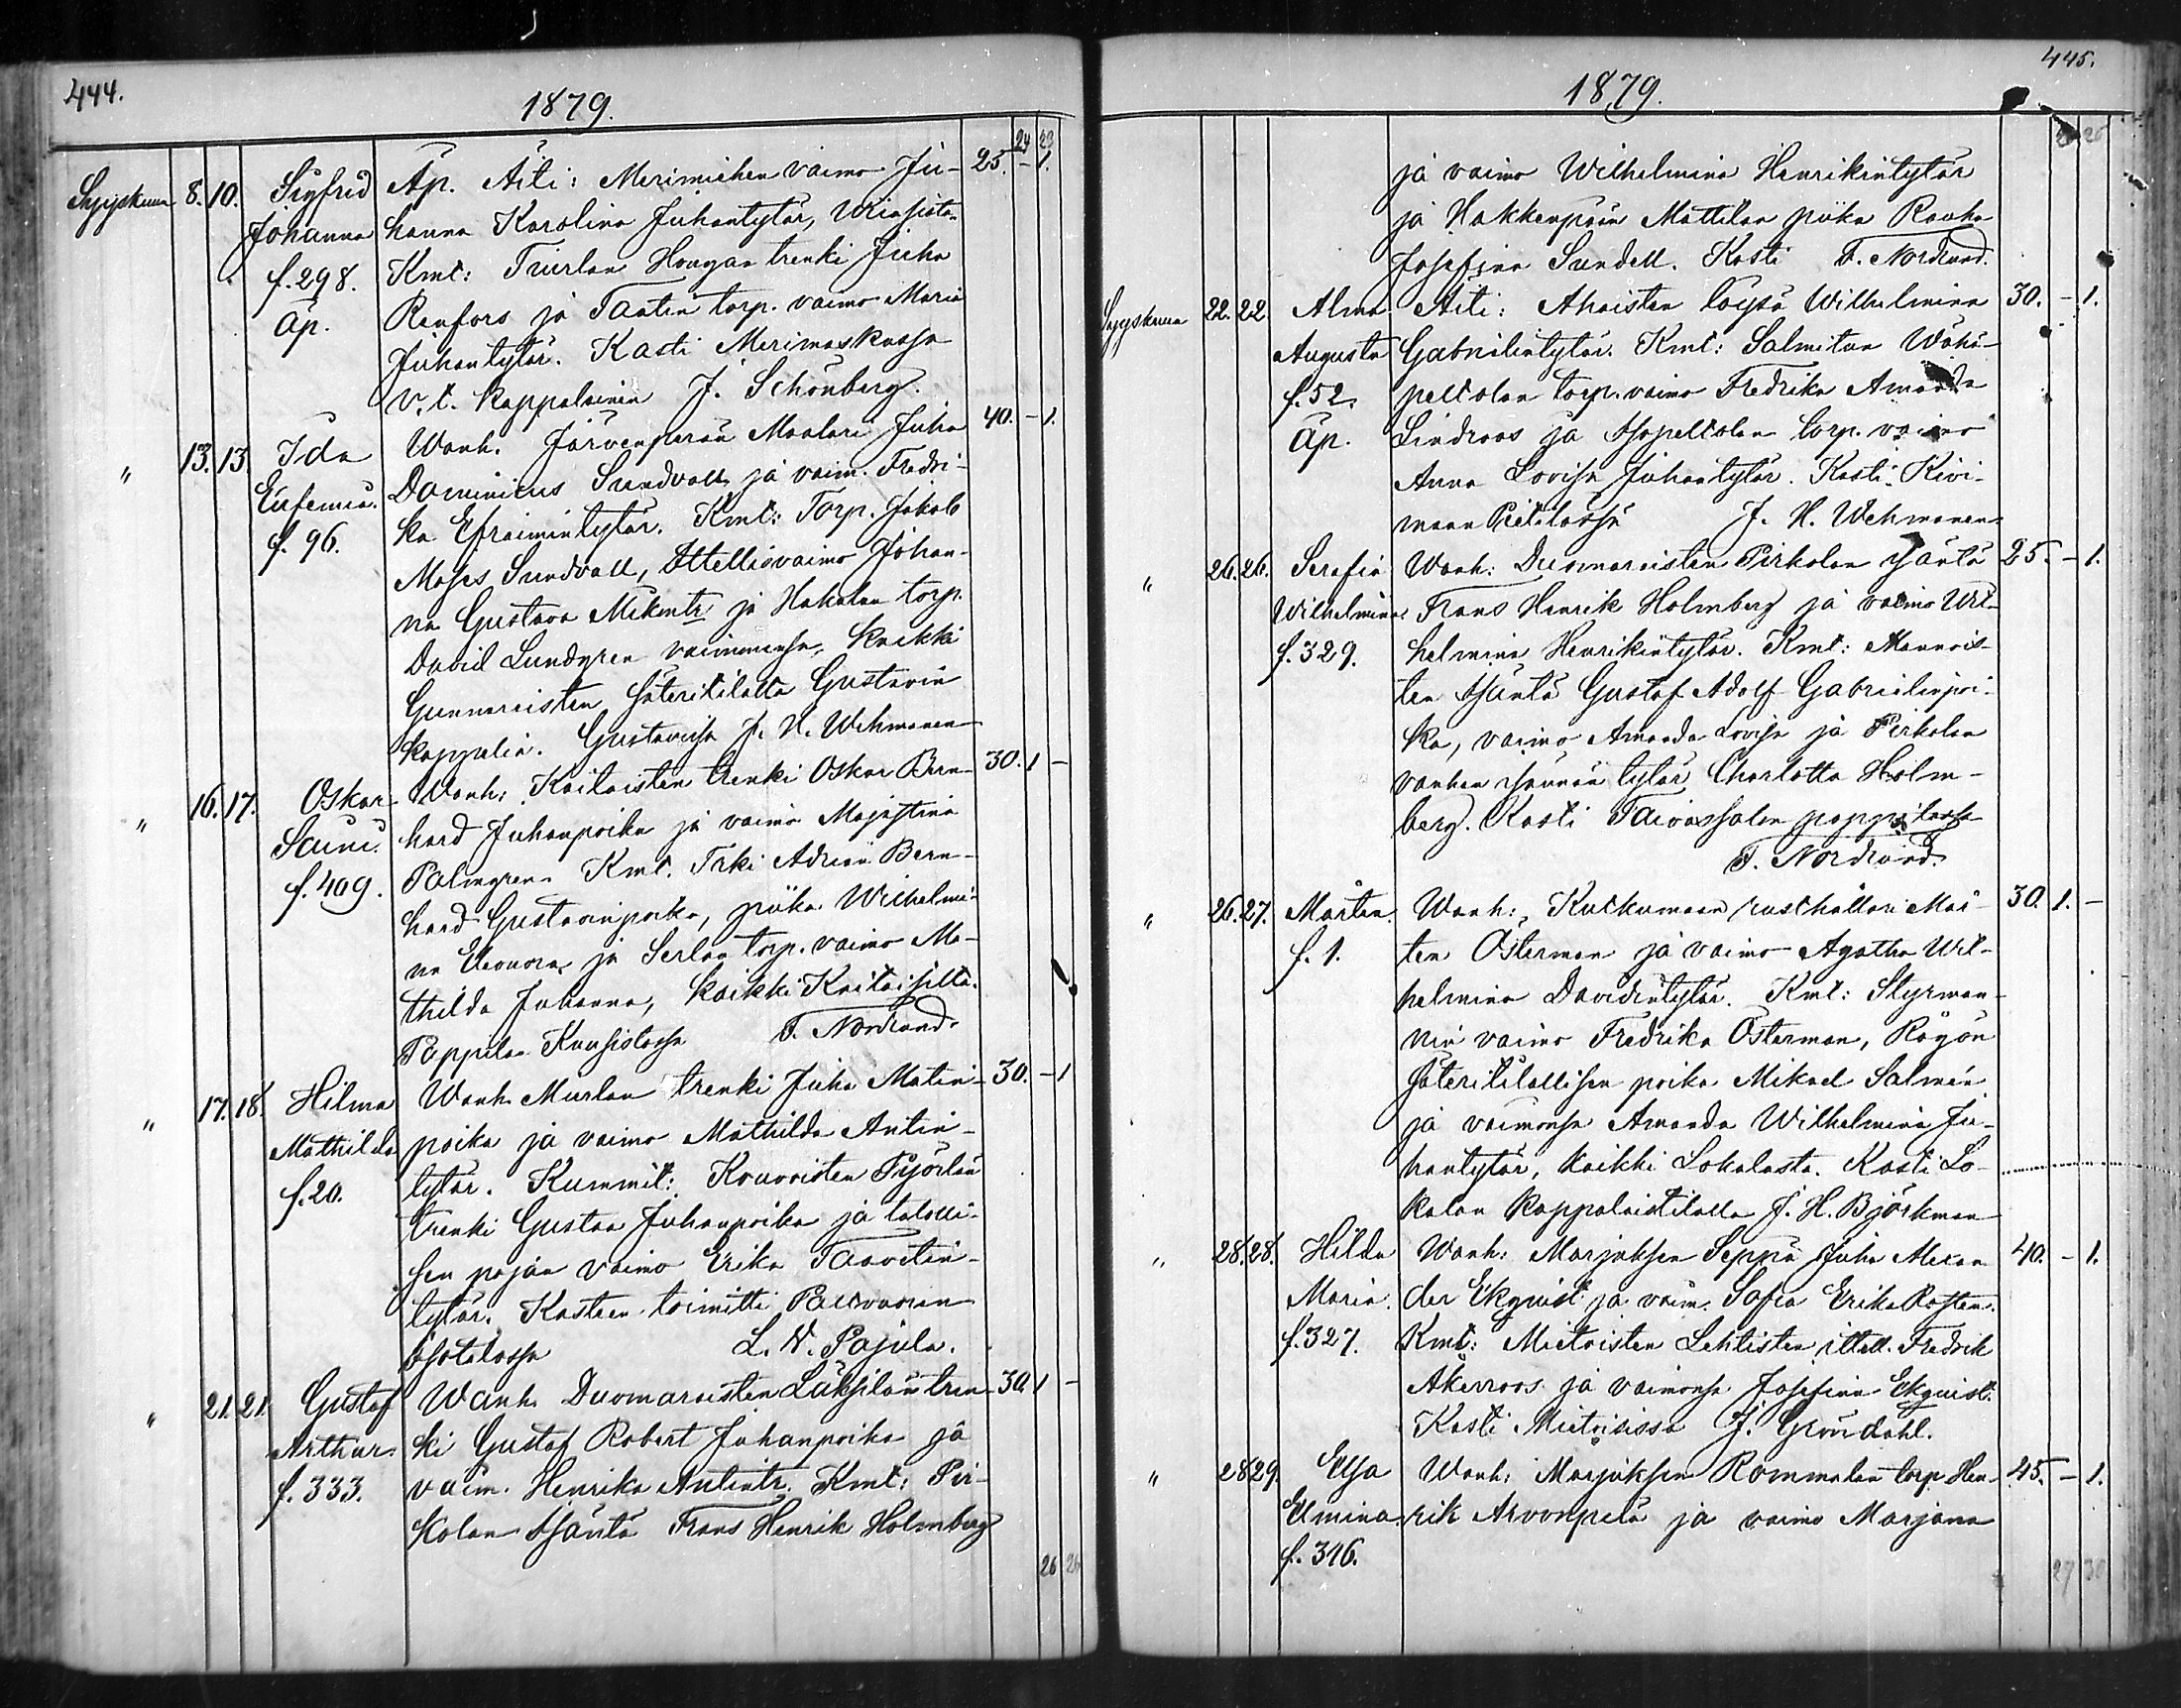 444.
1879.
24 23
Syyskuu 8. 10. Sigfrid Äp. Äiti: Merimiehen vaimo Ju- 25. - 1.
Johanna hanna Karolina Juhantytär,
f. 298. Kmt: Trurlan Hougan trenki Juha
Äp. Renfors ja Tantin torp. vaimo Maria
Juhantytär. Kasti Merimaskussa
v.t. kappalainen J. Schönberg.
" 13. 13. Ida Wanh. Järvenperän Maalari Juha 40. - 1.
Eufemia. Dominicus Sundvall ja vaim. Fredri-
f. 96. ka Efraimintytär. Kmt: Torp. Jakob
Moses Sundvall, Ittellisvaimo Johan-
na Gustava Mikintr ja Hakalan torp.
David Lundgren vaimonensa, kaikki
Gunnaraisten säteritilalta Gustavin
kappelia. Gustavissa J. H. Wehmanen
" 16. 17. Oskar Wanh: Kaitaisten trenki Oskar Bern- 30. 1 -
Sauni. hard Juhanpoika ja vaimo Majastina
f. 409. Palmgren. Kmt. Trki Adrian Bern-
hard Gustavinpoika, piika Wilhelmi-
na Eleonora ja Serlan torp. vaimo Ma-
thilda Johanna, kaikki Kaitaisilta.
Pappilan Kuusistossa F. Nordlund.
" 17. 18. Hilma Wanh. Murlan trenki Juha Matin- 30. - 1
Mathilda poika ja vaimo Mathilda Antin-
f. 20. tytär. Kummit: Kouvoisten Pyörlän
trenki Gustaa Juhanpoika ja talolli-
sen pojan vaimo Erika Taavetin-
tytär. Kasteen toimitti
L. V. Pajula.
" 21. 21. Gustaf Wanh. Duomaraisten Läksilän tren- 30. 1 -
Arthur. ki Gustaf Robert Juhanpoika ja
f. 333. vaim. Henrika Antintr. Kmt: Pir-
kolan Isäntä Frans Henrik Holmberg
26 26
445.
1879.
26
ja vaimo Wilhelmina Henrikintytär
ja Hakkenpään Mattilan piika Rauha
Josefina Sundell. Kasti F. Nordlund.
Syyskuu 22. 22. Alma Äiti: Ahaisten löysä Wilhelmina 30. - 1.
Augusta Gabrielintytär. Kmt: Salmitun Wähä-
f. 52. peltolan torp. vaimo Fredrika Amanda
Äp. Lindroos ja Isopeltolan torp. vaimo
Anna Lovisa Juhantytär. Kasti Kivi-
maan Pietilässä J. H. Wehmanen
" 26. 26. Serafia Wanh: Duomaraisten Pirkolan Isäntä 25. - 1.
Wilhelmina. Frans Henrik Holmberg ja vaimo Wil-
f. 329. helmina Henrikintytär. Kmt: Mannois-
ten Isäntä Gustaf Adolf Gabrielinpoi-
ka, vaimo Amanda Lovisa ja Pirkolan
vanhan Isännän tytär Charlotta Holm-
berg. Kasti Taivassalon pappilassa
F. Nordlund.
" 26. 27. Mårten. Wanh: Kutkumaan rusthållari Mår- 30. 1. -
f. 1. ten Österman ja vaimo Agatha Wil-
helmina Davidintytär. Kmt: Styrman-
nin vaimo Fredrika Österman, Rågön
säteritilallisen poika Mikael Salmén
ja vaimonsa Amanda Wilhelmina Ju-
hantytär, kaikki Lokalasta. Kasti Lo-
kalan kappalaistilalla J. H. Björkman
" 28. 28. Hilda Wanh: Marjaksen Seppä Juha Alexan- 40. - 1.
Maria. der Ekquist ja vaim. Sofia Erika Rosten.
f. 327. Kmt: Mietoisten Lehtisten ittell. Fredrik
Åkerroos ja vaimonsa Josefina Ekquist.
Kasti Mietoisissa J. Gröndahl.
" 28 29. Elsa Wanh: Marjaksen Rommalan torp. Hen- 45. - 1.
Elmina. rik Arvonpelä ja vaimo Marjana
f. 316.
27 30